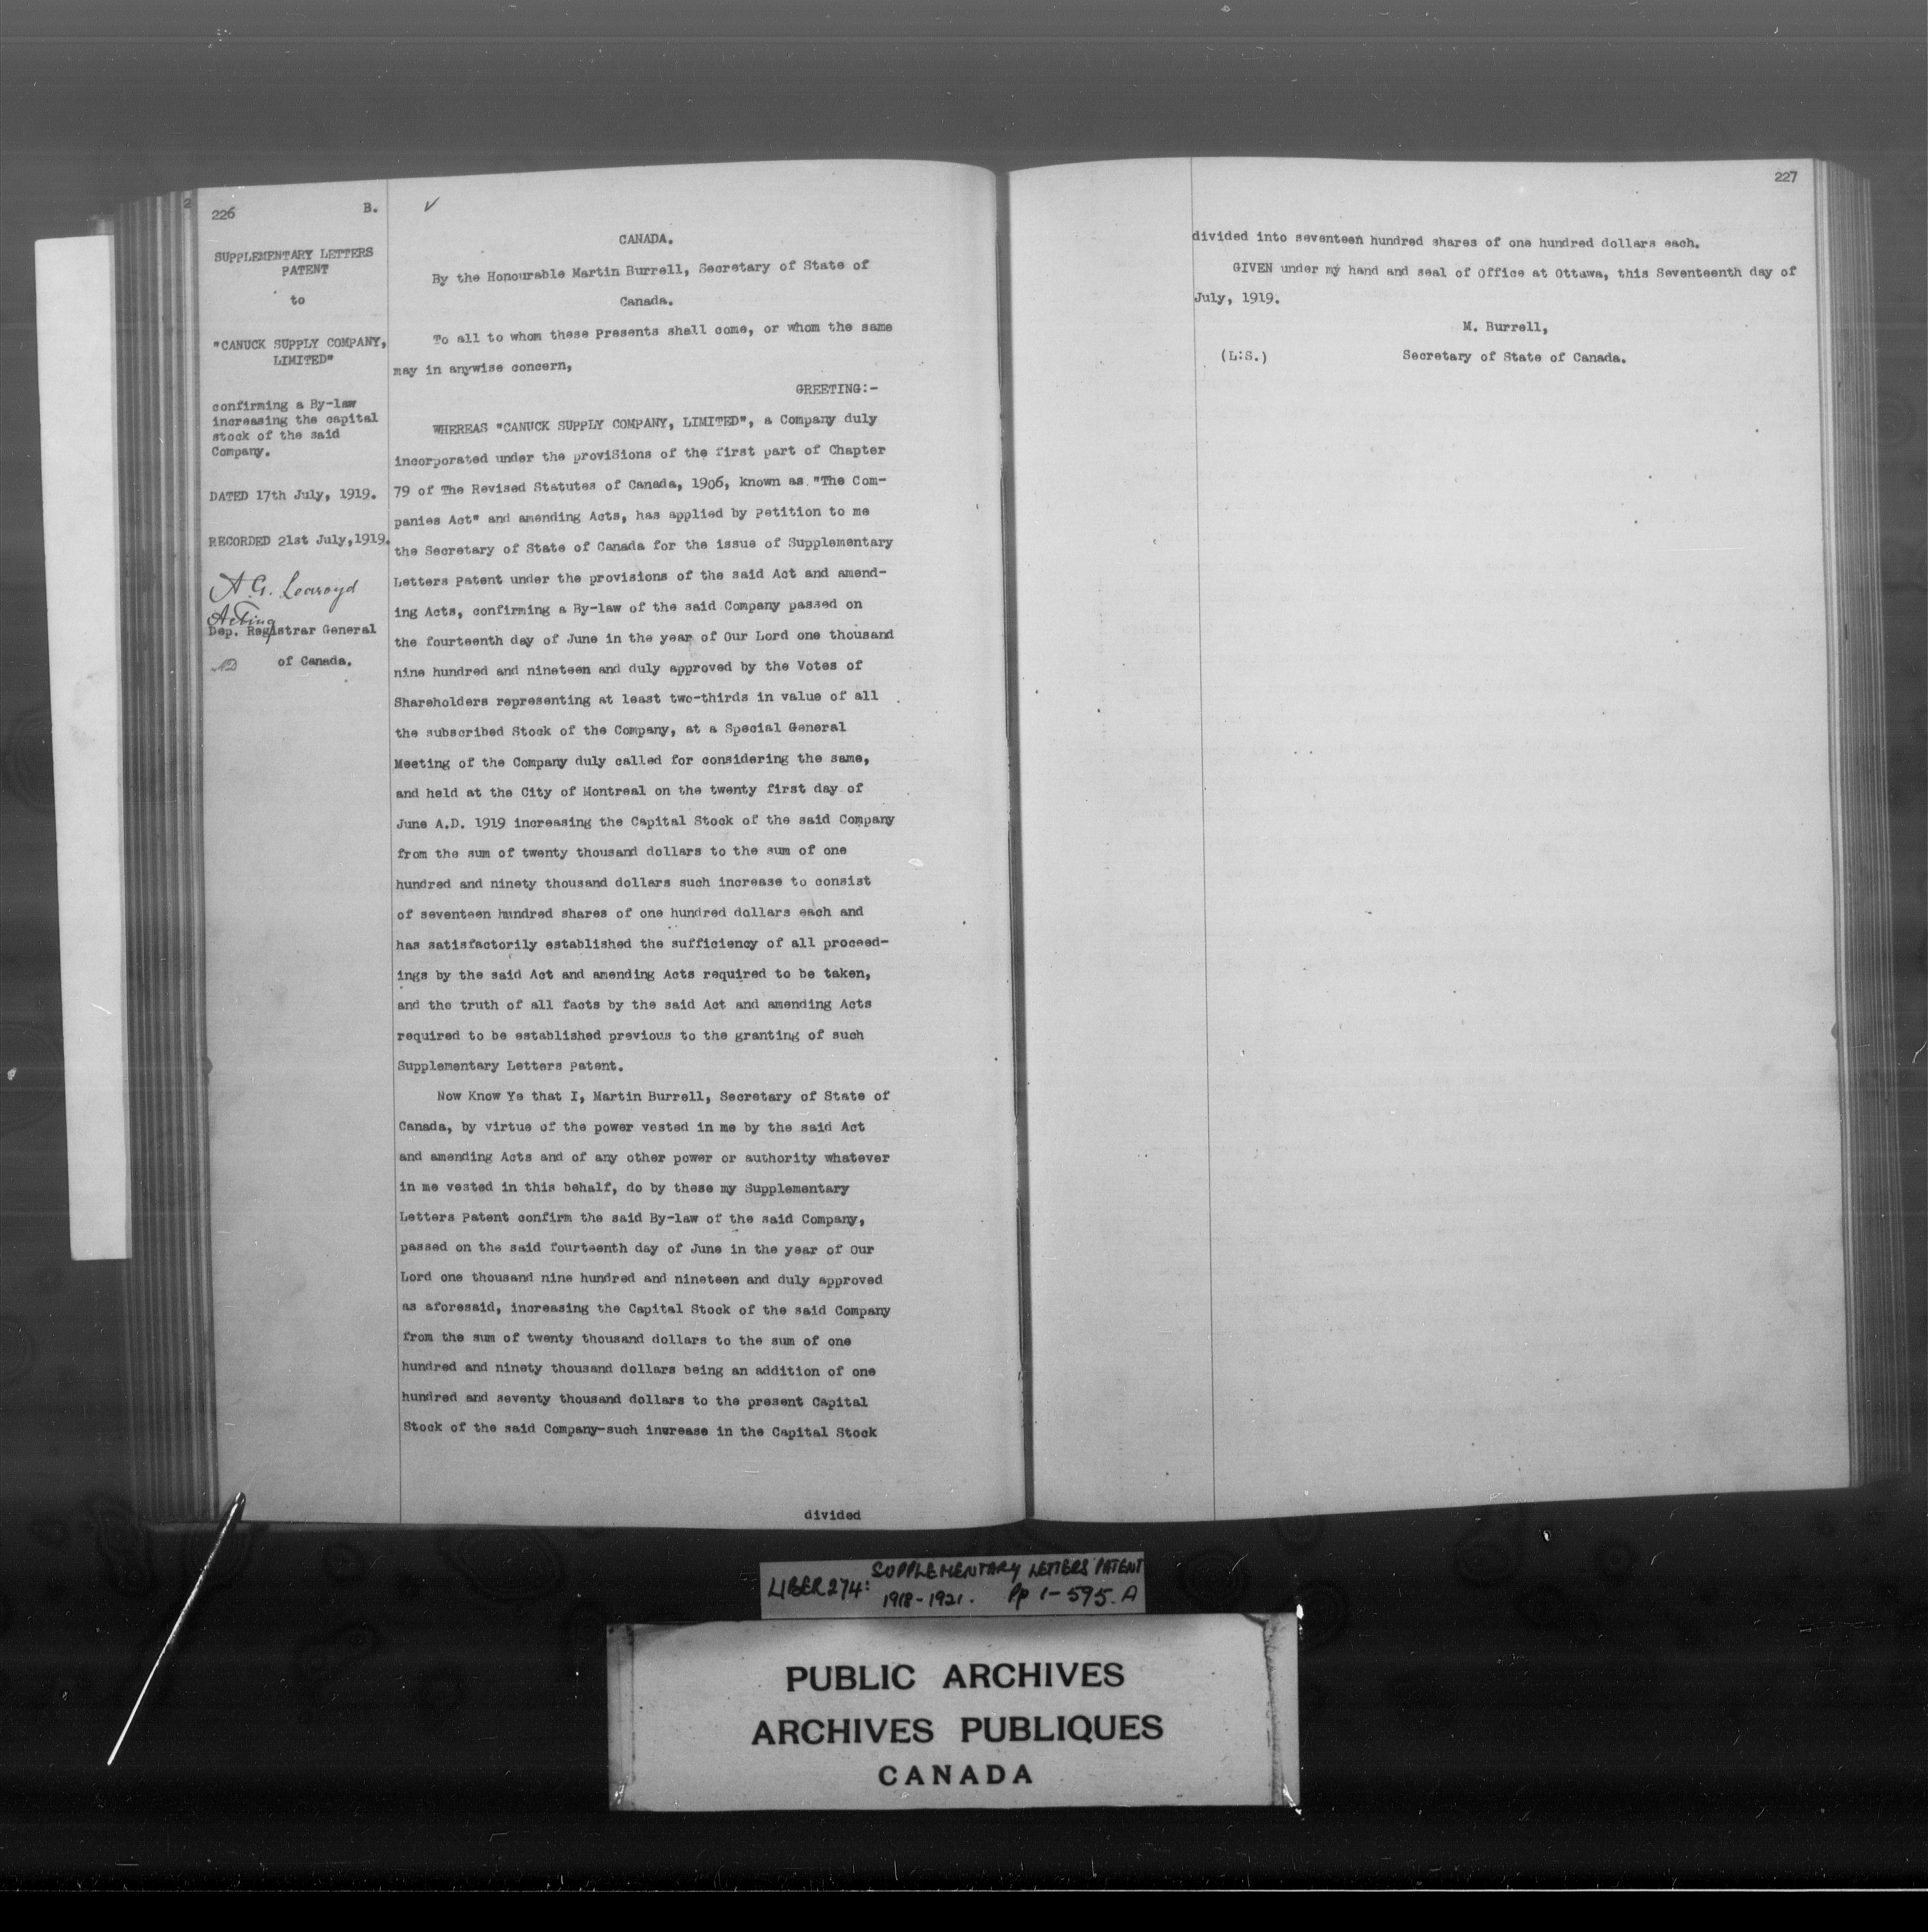 226 B. ✓
SUPPLEMENTARY LETTERS
PATENT
to
"CANUCK SUPPLY COMPANY,
LIMITED"
confirming a By-law
increasing the capital
stock of the said
Company.
DATED 17th July, 1919.
RECORDED 21st July, 1919.
A. G. Learoyd
Acting
Dep. Registrar General
of Canada.
CANADA.
By the Honourable Martin Burrell, Secretary of State of
Canada.
To all to whom these Presents shall come, or whom the same
may in anywise concern,
GREETING:-
WHEREAS "CANUCK SUPPLY COMPANY, LIMITED", a Company duly
incorporated under the proviSions of the first part of Chapter
79 of The Revised Statutes of Canada, 1906, known as "The Com-
panies Act" and amending Acts, has applied by Petition to me
the Secretary of State of Canada for the issue of Supplementary
Letters Patent under the provisions of the said Act and amend-
ing Acts, confirming a By-law of the said Company passed on
the fourteenth day of June in the year of Our Lord one thousand
nine hundred and nineteen and duly approved by the Votes of
Shareholders representing at least two-thirds in value of all
the subscribed Stock of the Company, at a Special General
Meeting of the Company duly called for considering the same,
and held at the City of Montreal on the twenty first day of
June A.D. 1919 increasing the Capital Stock of the said Company
from the sum of twenty thousand dollars to the sum of one
hundred and ninety thousand dollars such increase to consist
of seventeen hundred shares of one hundred dollars each and
has satisfactorily established the sufficiency of all proceed-
ings by the said Act and amending Acts required to be taken,
and the truth of all facts by the said Act and amending Acts
required to be established previous to the granting of such
Supplementary Letters Patent.
Now Know Ye that I, Martin Burrell, Secretary of State of
Canada, by virtue of the power vested in me by the said Act
and amending Acts and of any other power or authority whatever
in me vested in this behalf, do by these my Supplementary
Letters Patent confirm the said By-law of the said Company,
passed on the said fourteenth day of June in the year of Our
Lord one thousand nine hundred and nineteen and duly approved
as aforesaid, increasing the Capital Stock of the said Company
from the sum of twenty thousand dollars to the sum of one
hundred and ninety thousand dollars being an addition of one
hundred and seventy thousand dollars to the present Capital
Stock of the said Company-such increase in the Capital Stock
divided
227
divided into seventeen hundred shares of one hundred dollars each.
GIVEN under my hand and seal of Office at Ottawa, this Seventeenth day of
July, 1919.
M. Burrell,
(L:S.) Secretary of State of Canada.
LIBER 274: SUPPLEMENTARY LETTERS PATENT
1918-1921. Pp 1-595. A
PUBLIC ARCHIVES
ARCHIVES PUBLIQUES
CANADA